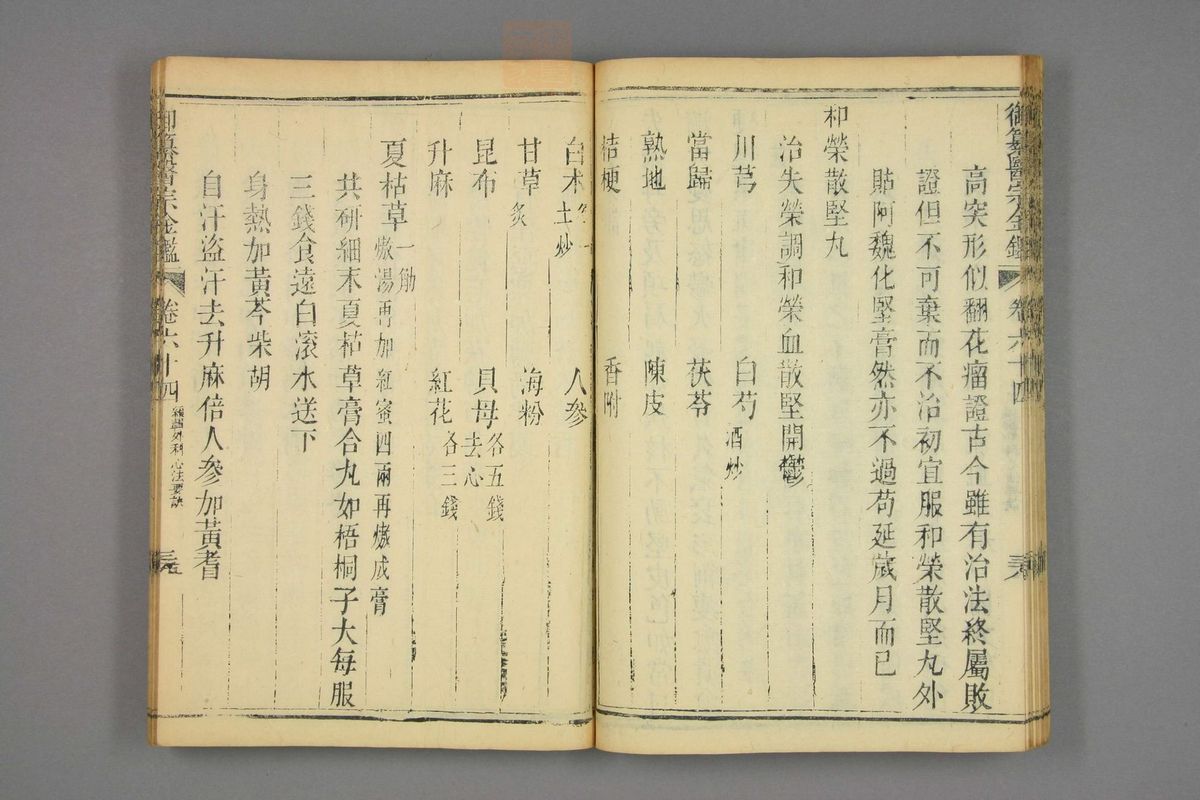 御纂醫宗金鑑 卷六十四
高突形似翻花瘤證古今雖有治法終屬敗
證但不可棄而不治初宜服和榮散堅丸外
貼阿魏化堅膏然亦不過苟延歲月而已
和榮散堅丸
治失榮調和榮血散堅開鬱
川芎 白芍酒炒
當歸 茯苓
熟地 陳皮
桔梗 香附
白术土炒 人參
甘草炙 海粉
昆布 貝母去心 各五錢
升麻 紅花各三錢
夏枯草一觔 熬湯再加紅蜜四兩再熬成膏
共研細末夏枯草膏合丸如梧桐子大每服
三錢食遠白滾水送下
身熱加黃芩柴胡
自汗盜汗去升麻倍人參加黃耆
御纂醫宗金鑑 卷六十四 編輯外科心法要訣